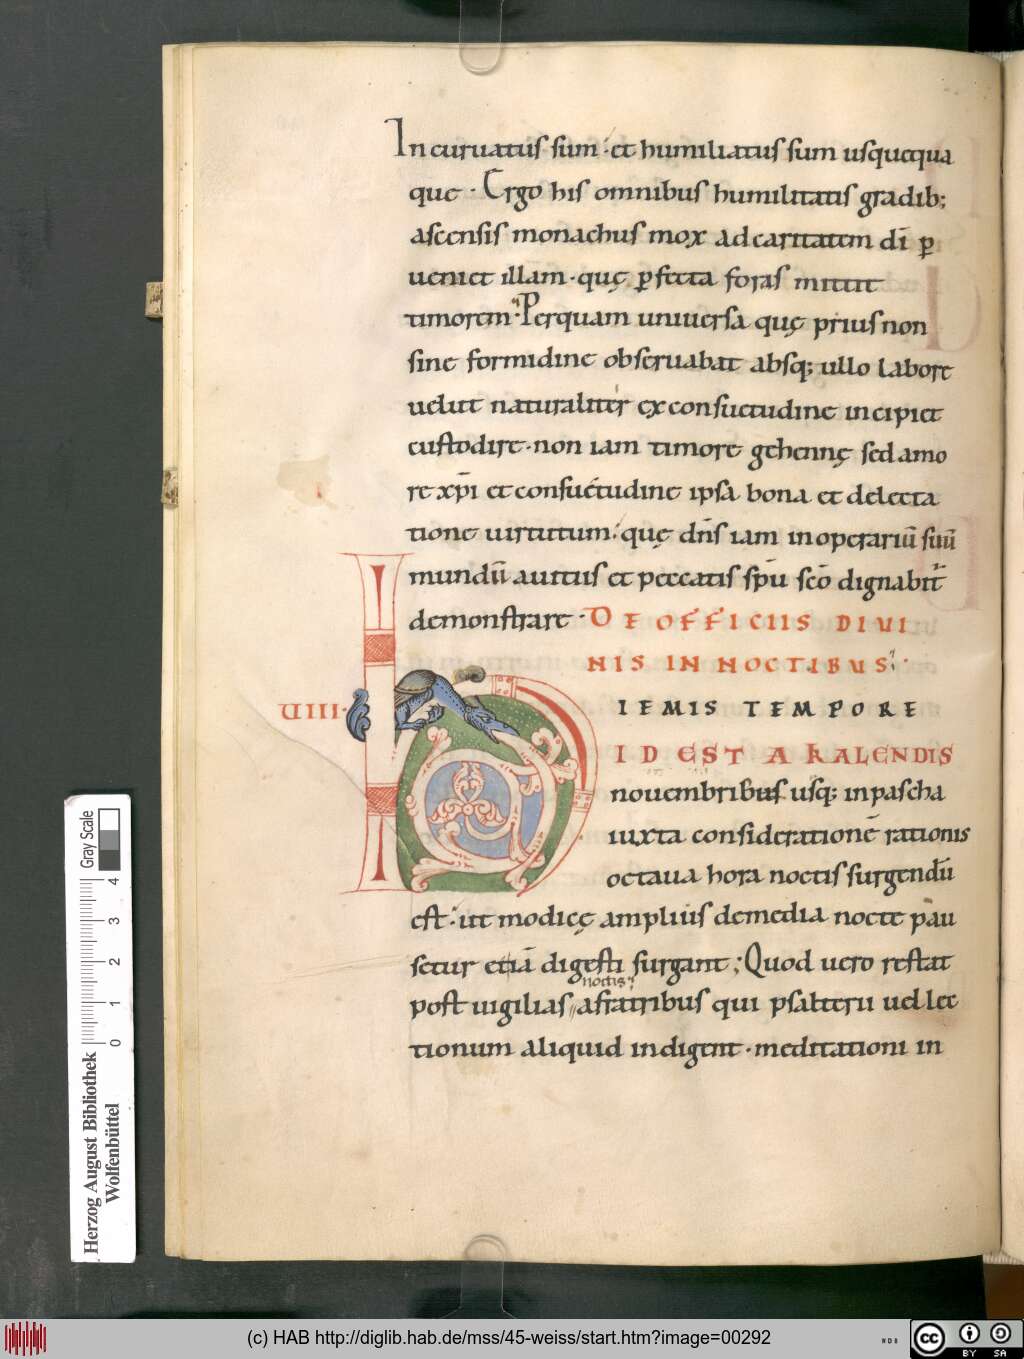 Incuruatus sum · et humiliatus sum usquequa
que · Ergo his omnibus humilitatis gradib;
ascensis monachus mox ad caritatem dī ꝑ
ueniet illam · quę ꝑfecta foras mittit
timorem · Perquam uniuersa quę prius non
sine formidine obseruabat absq; ullo labore
uelut naturaliter ex consuetudine incipiet
custodire · non iam timore gehennę sed amo
re xp̄i et consuetudine ipsa bona et delecta
tione uirtutum · quę dn̄s iam in operariū suū
mundū a uitiis et peccatis sp̄u sc̄o dignabit̄
demonstrare · DE OFFICIIS DIUI
NIS IN NOCTIBUS ·
UIII · HIEMIS TEMPORE
ID EST A KALENDIS
nouembribus usq; in pascha
iuxta considerationē rationis
octaua hora noctis surgendū
est · ut modicę amplius de media nocte pau
setur etiā digesti surgant; Quod uero restat
noctis
post uigilias a fratribus qui psalterii uel lec
tionum aliquid indigent · meditationi in
Herzog August Bibliothek
Wolfenbüttel
0 1 2 3 4
Gray Scale
(c) HAB http://diglib.hab.de/mss/45-weiss/start.htm?image=00292
WDB
cc BY SA